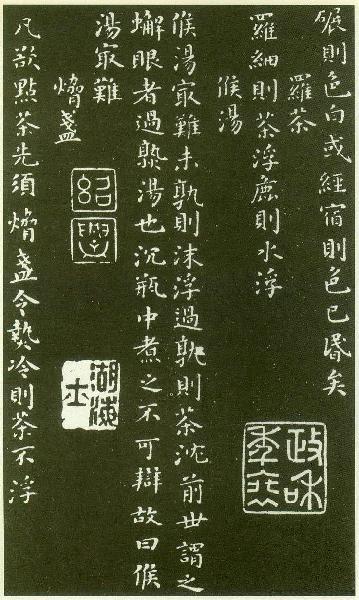 碾則色白或經宿則色已昬矣
羅茶
羅細則茶浮麁則水浮
候湯
候湯冣難未孰則沫浮過孰則茶沈前世謂之
蠏眼者過熟湯也沉瓶中煮之不可辯故曰候
湯冣難
熁盞
凡欲點茶先須熁盞令熱冷則茶不浮
湖海
士